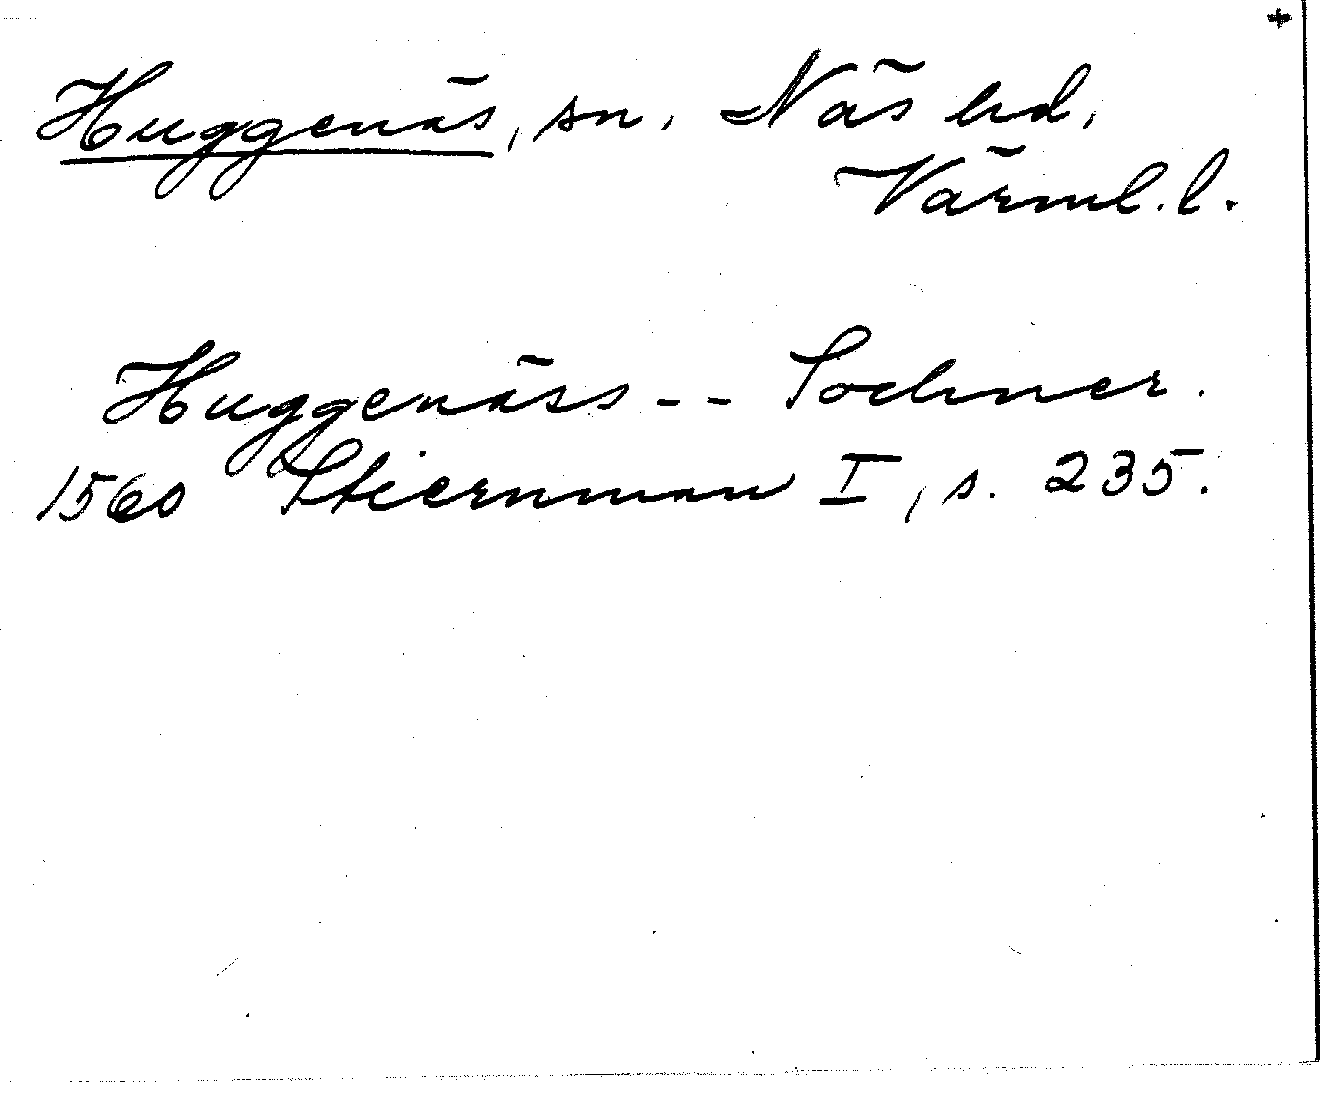 +
Huggenäs, sn, Näs hd,
Värml. l.
Huggenäss -- Sochner.
1560 Stiernman I, s. 235.